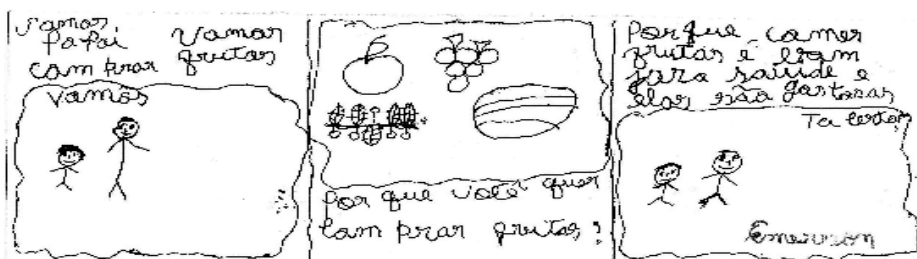 Vamos
Papai Vamos
comprar frutas
Vamos
Por que você quer
comprar frutas?
Porque comer
frutas é bom
para saúde e
elas são gostosas
Ta certo
Emerson